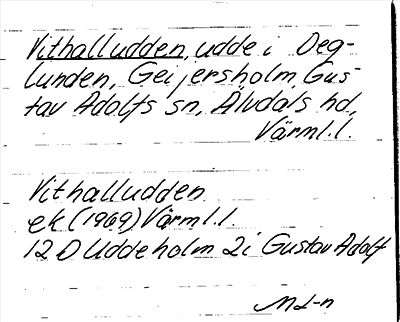 Vithalludden, udde i Deg-
lunden, Geijersholm, Gus-
tav Adolfs sn, Älvdals hd,
Värml.l.
Vithalludden
ek (1969) Värml.l.
12 D Uddeholm 2i Gustav Adolf